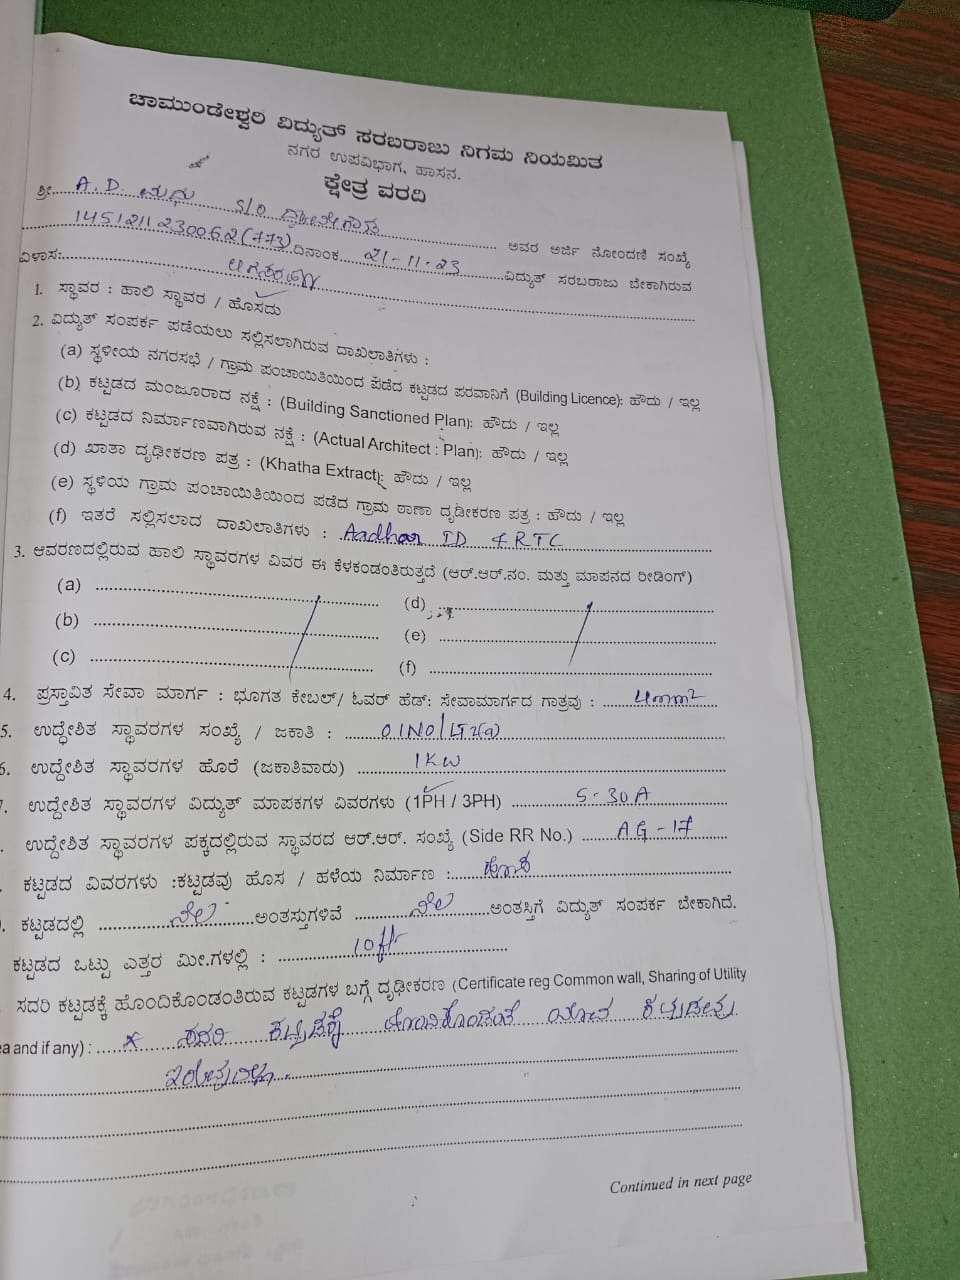 ಚಾಮುಂಡೇಶ್ವರಿ ವಿದ್ಯುತ್ ಸರಬರಾಜು ನಿಗಮ ನಿಯಮಿತ
ನಗರ ಉಪವಿಭಾಗ, ಹಾಸನ.
ಕ್ಷೇತ್ರ ವರದಿ
ಶ್ರೀ..... A.D. ಮಧು S/O ........ ಅವರ ಅರ್ಜಿ ನೋಂದಣಿ ಸಂಖ್ಯೆ
1451211230062(773) ದಿನಾಂಕ 21-11-23 ವಿದ್ಯುತ್ ಸರಬರಾಜು ಬೇಕಾಗಿರುವ
ವಿಳಾಸ:
1. ಸ್ಥಾವರ : ಹಾಲಿ ಸ್ಥಾವರ / ಹೊಸದು
2. ವಿದ್ಯುತ್ ಸಂಪರ್ಕ ಪಡೆಯಲು ಸಲ್ಲಿಸಲಾಗಿರುವ ದಾಖಲಾತಿಗಳು :
(a) ಸ್ಥಳೀಯ ನಗರಸಭೆ / ಗ್ರಾಮ ಪಂಚಾಯಿತಿಯಿಂದ ಪಡೆದ ಕಟ್ಟಡದ ಪರವಾನಿಗೆ (Building Licence): ಹೌದು / ಇಲ್ಲ
(b) ಕಟ್ಟಡದ ಮಂಜೂರಾದ ನಕ್ಷೆ : (Building Sanctioned Plan): ಹೌದು / ಇಲ್ಲ
(c) ಕಟ್ಟಡದ ನಿರ್ಮಾಣವಾಗಿರುವ ನಕ್ಷೆ : (Actual Architect : Plan): ಹೌದು / ಇಲ್ಲ
(d) ಖಾತಾ ದೃಢೀಕರಣ ಪತ್ರ : (Khatha Extract): ಹೌದು / ಇಲ್ಲ
(e) ಸ್ಥಳಿಯ ಗ್ರಾಮ ಪಂಚಾಯಿತಿಯಿಂದ ಪಡೆದ ಗ್ರಾಮ ಠಾಣಾ ದೃಡೀಕರಣ ಪತ್ರ : ಹೌದು / ಇಲ್ಲ
(f) ಇತರೆ ಸಲ್ಲಿಸಲಾದ ದಾಖಲಾತಿಗಳು : Aadhar ID & RTC
3. ಆವರಣದಲ್ಲಿರುವ ಹಾಲಿ ಸ್ಥಾವರಗಳ ವಿವರ ಈ ಕೆಳಕಂಡಂತಿರುತ್ತದೆ (ಆರ್.ಆರ್.ನಂ. ಮತ್ತು ಮಾಪನದ ರೀಡಿಂಗ್)
(a) ........ (d) ........
(b) ........ (e) ........
(c) ........ (f) ........
4. ಪ್ರಸ್ತಾವಿತ ಸೇವಾ ಮಾರ್ಗ : ಭೂಗತ ಕೇಬಲ್/ ಓವರ್ ಹೆಡ್: ಸೇವಾಮಾರ್ಗದ ಗಾತ್ರವು : 4mm2
5. ಉದ್ಧೇಶಿತ ಸ್ಥಾವರಗಳ ಸಂಖ್ಯೆ / ಜಕಾತಿ : 01NO/LT2(a)
6. ಉದ್ದೇಶಿತ ಸ್ಥಾವರಗಳ ಹೊರೆ (ಜಕಾತಿವಾರು) 1KW
7. ಉದ್ದೇಶಿತ ಸ್ಥಾವರಗಳ ವಿದ್ಯುತ್ ಮಾಪಕಗಳ ವಿವರಗಳು (1PH / 3PH) 5-30A
. ಉದ್ದೇಶಿತ ಸ್ಥಾವರಗಳ ಪಕ್ಕದಲ್ಲಿರುವ ಸ್ಥಾವರದ ಆರ್.ಆರ್. ಸಂಖ್ಯೆ (Side RR No.) AG-17
. ಕಟ್ಟಡದ ವಿವರಗಳು :ಕಟ್ಟಡವು ಹೊಸ / ಹಳೆಯ ನಿರ್ಮಾಣ :
. ಕಟ್ಟಡದಲ್ಲಿ ನೆಲ ಅಂತಸ್ತುಗಳಿವೆ ನೆಲ ಅಂತಸ್ತಿಗೆ ವಿದ್ಯುತ್ ಸಂಪರ್ಕ ಬೇಕಾಗಿದೆ.
ಕಟ್ಟಡದ ಒಟ್ಟು ಎತ್ತರ ಮೀ.ಗಳಲ್ಲಿ : 10ft
ಸದರಿ ಕಟ್ಟಡಕ್ಕೆ ಹೊಂದಿಕೊಂಡಂತಿರುವ ಕಟ್ಟಡಗಳ ಬಗ್ಗೆ ದೃಢೀಕರಣ (Certificate reg Common wall, Sharing of Utility
ea and if any) : * ಸದರಿ ಕಟ್ಟಡಕ್ಕೆ ಹೊಂದಿಕೊಂಡಂತೆ ಯಾವ ಕಟ್ಟಡವು
ಇರುವುದಿಲ್ಲ.
Continued in next page